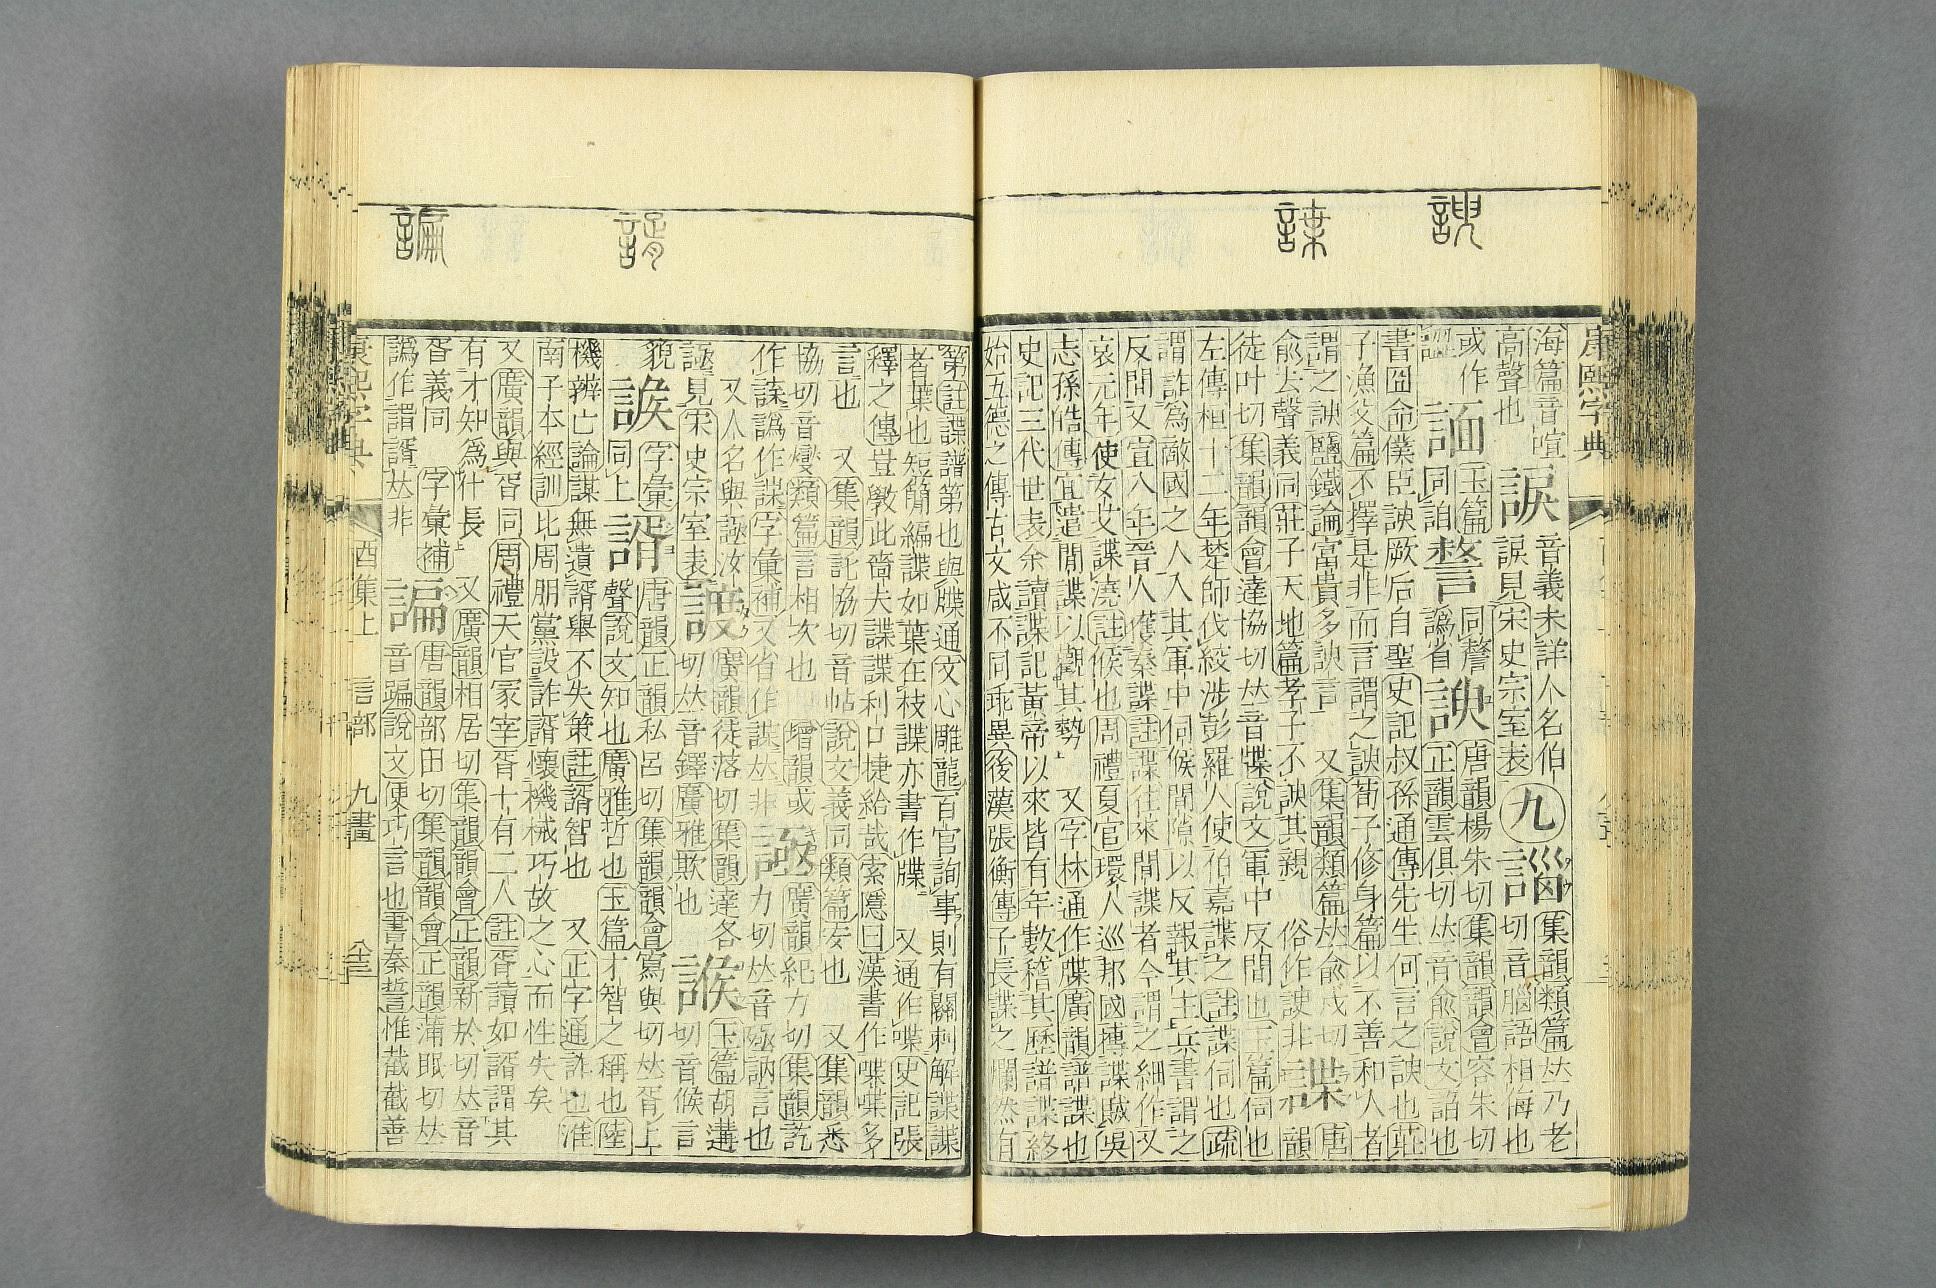 諛
諜
康熙字典
海篇音喧
高聲也
誏
音義未詳人名伯
誏見宋史宗室表
九
𧩣
集韻類篇𠀤乃老
切音腦語相侮也
或作
謳
𧩟
玉篇
同詯
謷
同警
譌省
諛
唐韻楊朱切集韻韻會容朱切
正韻雲俱切𠀤音俞說文諂也
書冏命僕臣諛厥后自聖史記叔孫通傳先生何言之諛也莊
子漁父篇不擇是非而言謂之諛荀子修身篇以不善和人者
謂之諛鹽鐵論富貴多諛言 又集韻類篇𠀤俞戍切
俞去聲義同莊子天地篇孝子不諛其親 俗作䛕非
諜
唐
韻
徒叶切集韻韻會達協切𠀤音牒說文軍中反閒也玉篇伺也
左傳桓十二年楚師伐絞涉彭羅人使伯嘉諜之註諜伺也疏
謂詐爲敵國之人入其軍中伺候閒隙以反報其主兵書謂之
反閒又宣八年晉人獲秦諜註諜往來閒諜者今謂之細作又
哀元年使女艾諜澆註候也周禮夏官環人巡邦國搏諜賊吳
志孫皓傳宜遣閒諜以觀其勢 又字林通作牒廣韻譜諜也
史記三代世表余讀諜記黃帝以來皆有年數稽其歷譜諜終
始五德之傳古文咸不同乖異後漢張衡傳子長諜之爛然有
諝
諞
第註諜譜第也與牒通文心雕龍百官詢事則有關刺解諜諜
者葉也短𥳑編諜如葉在枝諜亦書作𧩅 又通作喋史記張
釋之傳豈斅此嗇夫諜諜利口捷給哉索隱曰漢書作喋喋多
言也 又集韻託協切音帖說文義同類篇安也 又集韻悉
協切音燮類篇言相次也 增韻或
作𧩥譌作䜓字彙補又省作䛟𠀤非
𧪈
廣韻紀力切集韻訖
力切𠀤音殛訥言也
又人名與𧪈汝
𧪈見宋史宗室表
𧩲
廣韻徒落切集韻達各
切𠀤音鐸廣雅欺也
𧩨
玉篇胡溝
切音候言
貌
𧩯
字彙
同上
諝
唐韻正韻私呂切集韻韻會寫與切𠀤胥上
聲說文知也廣雅哲也玉篇才智之稱也陸
機辨亡論謀無遺諝舉不失策註諝智也 又正字通詐也淮
南子本經訓比周朋黨設詐諝懷機械巧故之心而性失矣
又廣韻與胥同周禮天官冢宰胥十有二人註胥讀如諝謂其
有才知爲什長 又廣韻相居切集韻韻會正韻新於切𠀤音
胥義同 字彙補
譌作謂諝𠀤非
諞
唐韻部田切集韻韻會正韻蒲眠切𠀤
音蹁說文便巧言也書秦誓惟截截善
康熙字典
酉集上 言部 九畫